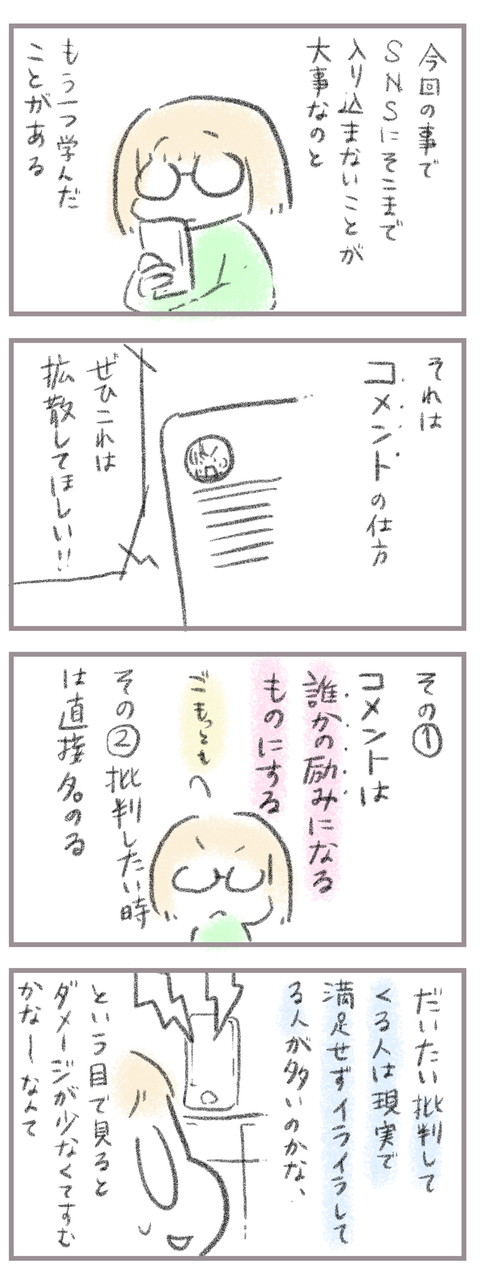 今回の事で
SNSにそこまで
入り込まないことが
大事なのと
もう一つ学んだ
ことがある
それは
コメントの仕方
ぜひこれは
拡散してほしい!!
その①
コメントは
誰かの励みになる
ものにする
ごもっとも
その②批判したい時
は直接名のる
だいたい批判して
くる人は現実で
満足せずイライラして
る人が多いのかな、
という目で見ると
ダメージが少なくてすむ
かなーなんて